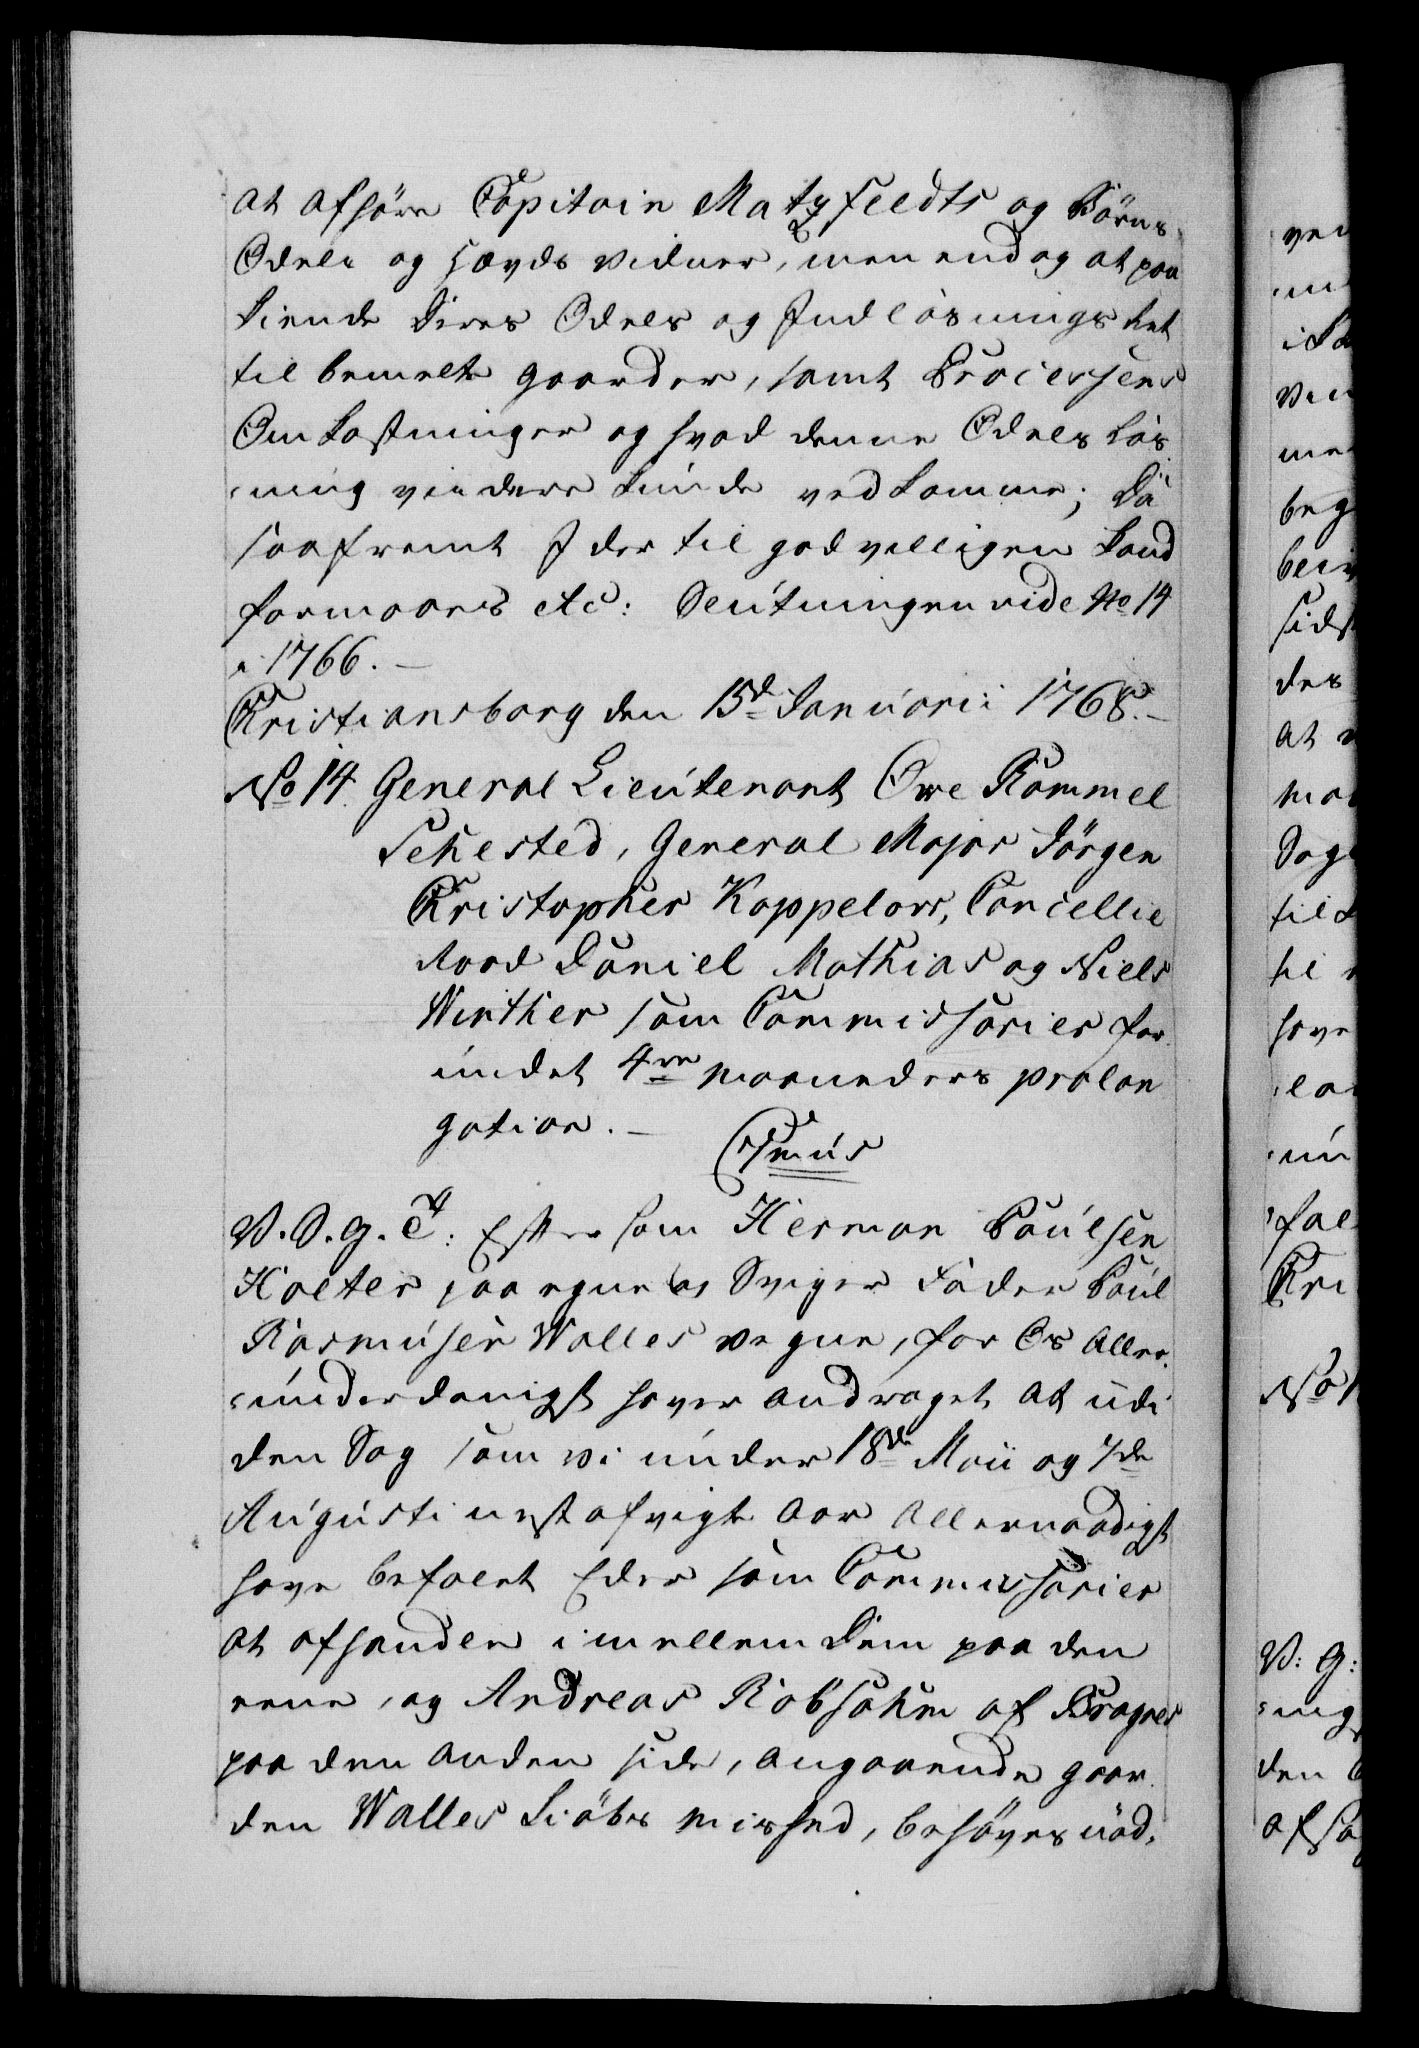 at afhöre Capitain Matzfeldts og Börns
Odels og hævds vidner, men endog at paa
kiende deres Odels og Indlösnings Ret
til bemelte gaarder, samt Processens
Omkostninger og hvad denne Odels Lös
-ning videre kunde vedkomme; Da
saafremt I der til godvilligen kand
formaaes etc: Slutningen vide No 14
a 1766. —
Christiansborg den 15de Januarii 1768. —
No 14. General Lieutenant Owe Rammel
Sehested, General Major Jörgen
Christopher Koppelow, Cancellie
Raad Daniel Mathias og Niels
Winther som Commissarier for
undet 4re maaneders prolon
gation. —
Csmus
V. S. G. T: Eftersom Herman Poulsen
Holter paa egne og Sviger Fader Poul
Rasmusen Walles vegne, for Os Aller
-underdanigst haver andraget at udi
den Sag som vi under 18de Maii og 7de
Augusti nestafvigte Aar Allernaadigst
have befalet Eder som Commissarier
at afhandle imellem Dem paa den
eene, og Andreas Robsahm af Bragnes
paa den anden side, angaaende gaar
den Walles Kiöbs misshed, behöves nöd,
ved
i Ko
ven
med
beg
sidst
des
at
Sag
til
have
fal
Chri
No 1
V: G:
den
afsa